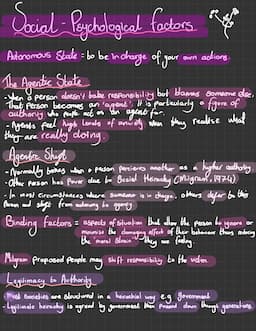 Social-Psychological Factors
Autonomous State = to be in charge of your own actions.
The Agentic State
- When a person doesn't take responsibility but blames someone else.
That person becomes an 'agent'. It is particularly a figure of
authority who people act as an agent for.
- Agents feel high levels of anxiety when they realise what
they are really doing
Agentic Shift
- Normally being when a person perceives another as a higher authority
- Other person has Power due to Social Hierarchy (Milgram, 1974)
- In most circumstances where someone is in charge, others defer to this
Person and shift from autonomy to agency
Binding Factors = aspects of situation that allow the person to ignore or
minimise the damaging effect of their behaviour thus reducing
the 'moral strain' they are feeling.
Milgram proposed people may shift responsibility to the victim
Legitimacy to Authority
Most societies are structured in a hierarchal way e.g. Government
Legitimate hierarchy is agreed by government then passed down through generations.